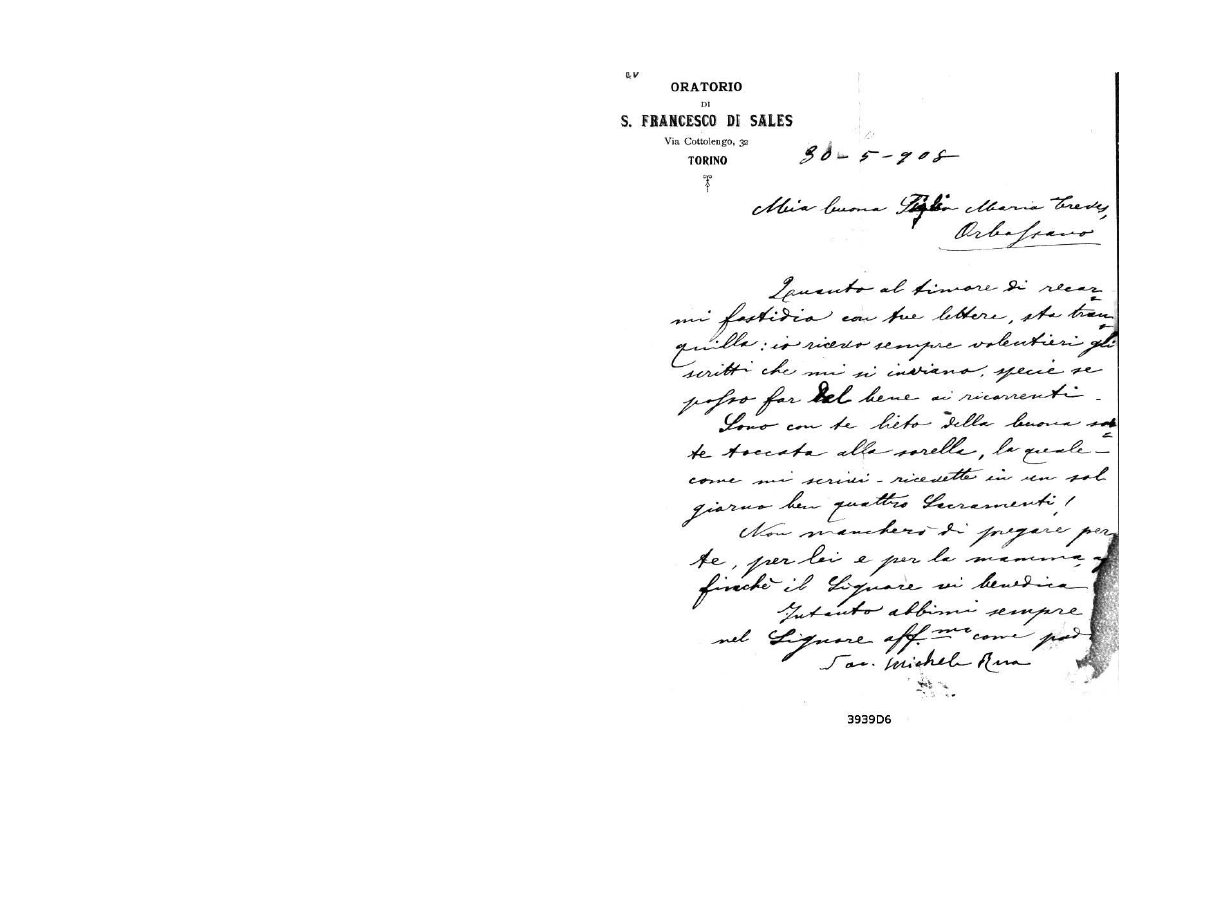 ORATORIO
DI
S. FRANCESCO DI SALES
Via Cottolengo, 32
TORINO
30-5-908
Mia buona Figlia Maria Treves,
Orbassano
Quanto al timore di recar=
mi fastidio con tue lettere, sta tran=
quilla: io ricevo sempre volentieri gli
scritti che mi si inviano, specie se
posso far del bene ai ricorrenti.
Sono con te lieto della buona sor=
te toccata alla sorella, la quale -
come mi scrivi - ricevette in un sol
giorno ben quattro Sacramenti!
Non mancherò di pregare per
te, per lei e per la mamma,
finchè il Signore vi benedica
Intanto abbimi sempre
nel Signore aff.mo come pad
Sac. Michele Rua
3939D6